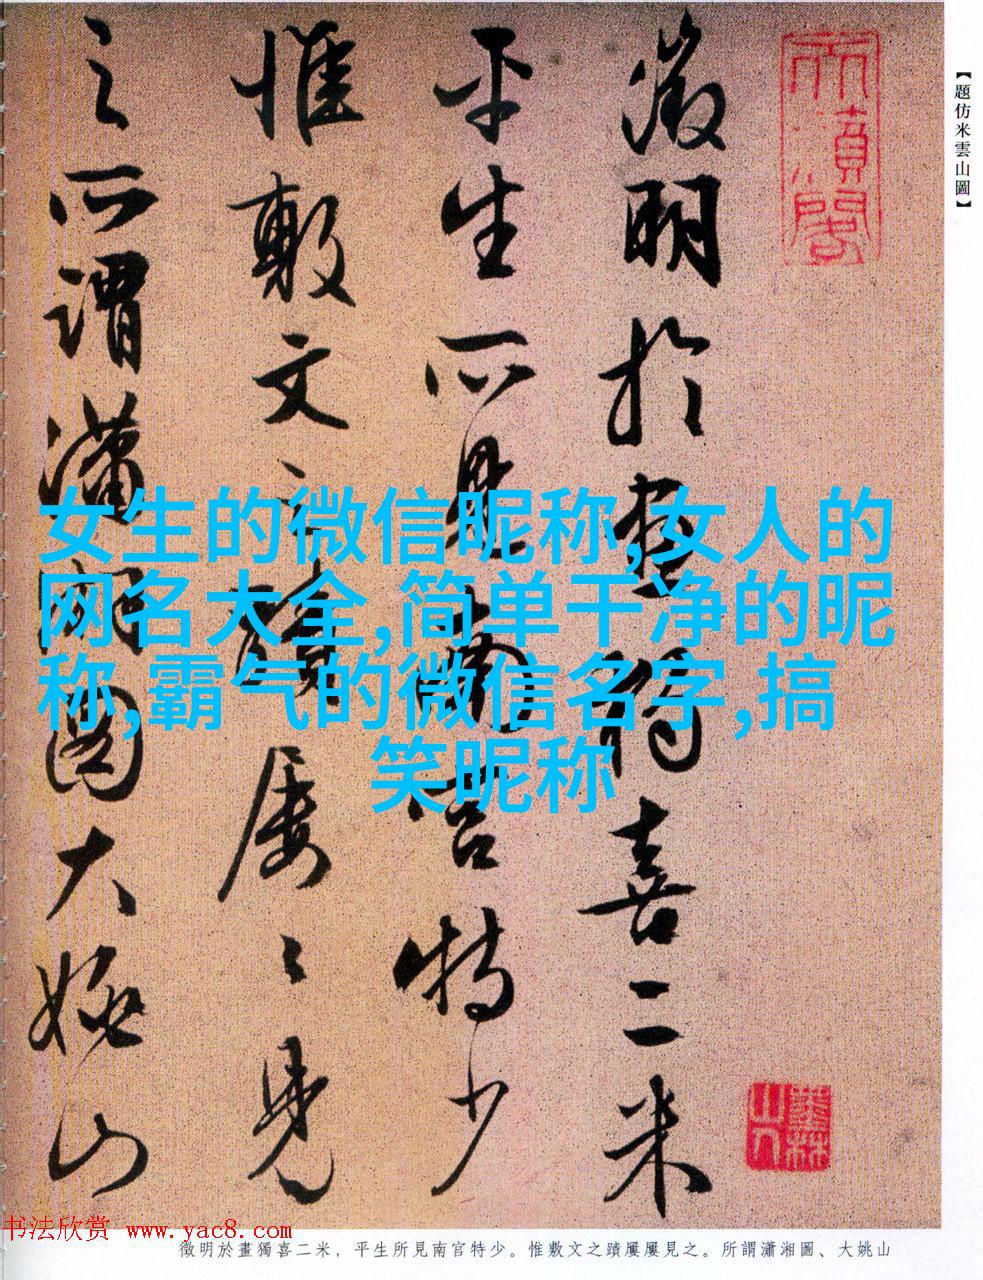 【題仿米雲山圖】
徵明於畫獨喜二米
平生所見南宮特少
惟敷文之蹟屢〻見
之所謂瀟湘圖大姚山
女生的微信昵称,女人的
网名大全,简单干净的昵
称,霸气的微信名字,搞
笑昵称
墨林
山人
书法欣赏 www.yac8.com
徵明於畫獨喜二米，平生所見南官特少。惟敷文之蹟屢屢見之。所謂瀟湘圖、大姚山